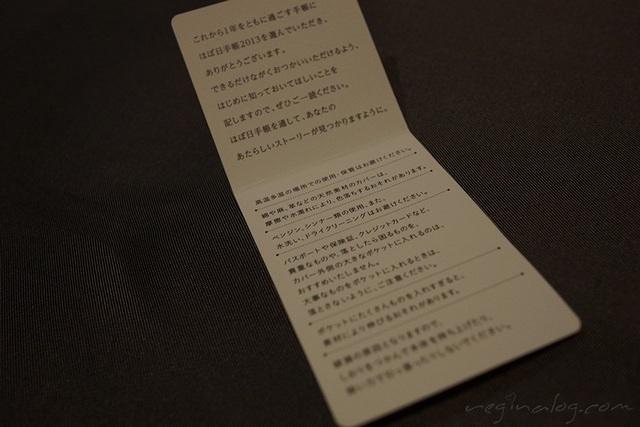 これから1年をともに過ごす手帳に
ほぼ日手帳2013を選んでいただき、
ありがとうございます。
できるだけながくおつかいいただけるよう、
はじめに知っておいてほしいことを
記しますので、ぜひご一読ください。
ほぼ日手帳を通して、あなたの
あたらしいストーリーが見つかりますように。
高温多湿の場所での使用・保管はお避けください。
綿や麻、革などの天然素材のカバーは、
摩擦や水濡れにより、色落ちするおそれがあります。
ベンジン、シンナー類の使用、また、
水洗い、ドライクリーニングはお避けください。
パスポートや保険証、クレジットカードなど、
貴重なものや、落としたら困るものを、
カバー外側の大きなポケットに入れるのは、
おすすめいたしません。
大事なものをポケットに入れるときは、
落とさないように、ご注意ください。
ポケットにたくさんものを入れすぎると、
素材により伸びるおそれがあります。
破損の原因となりますので、
しおりをつかんで本体を持ち上げたり、
強い力で引っ張ったりしないでください。
reginalog.com